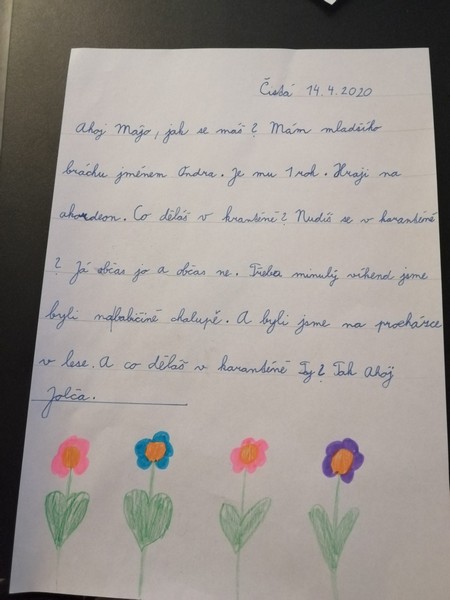 Čistá 14.4.2020
Ahoj Májo, jak se máš? Mám mladšího
bráchu jménem Ondra. Je mu 1 rok. Hraji na
akordeon. Co děláš v kranténě? Nudíš se v karanténě
? Já občas jo a občas ne. Třeba minulý víkend jsme
byli na babiččině chalupě. A byli jsme na procházce
v lese. A co děláš v karanténě Ty? Tak Ahoj
Jolča.